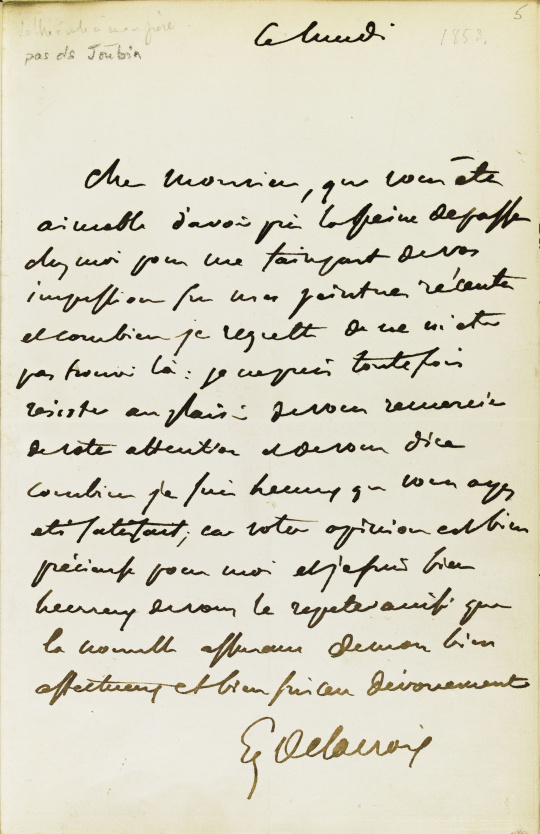 5
pas ds Joubin
Ce lundi
1853.
Cher Monsieur, que vous êtes
aimable d'avoir pris la peine de passer
chez moi pour me faire part de vos
impression sur mes peintures récentes
et combien je regrette de ne m'etre
pas trouvé là : je ne puis toutefois
résister au plaisir de vous remercier
de votre attention et de vous dire
combien je suis heureux que vous ayez
eté satisfait, car votre opinion est bien
précieuse pour moi et je suis bien
heureux de vous le repeter ainsi que
la nouvelle assurance de mon bien
affectueux et bien sincère dévouement
Eg Delacroix